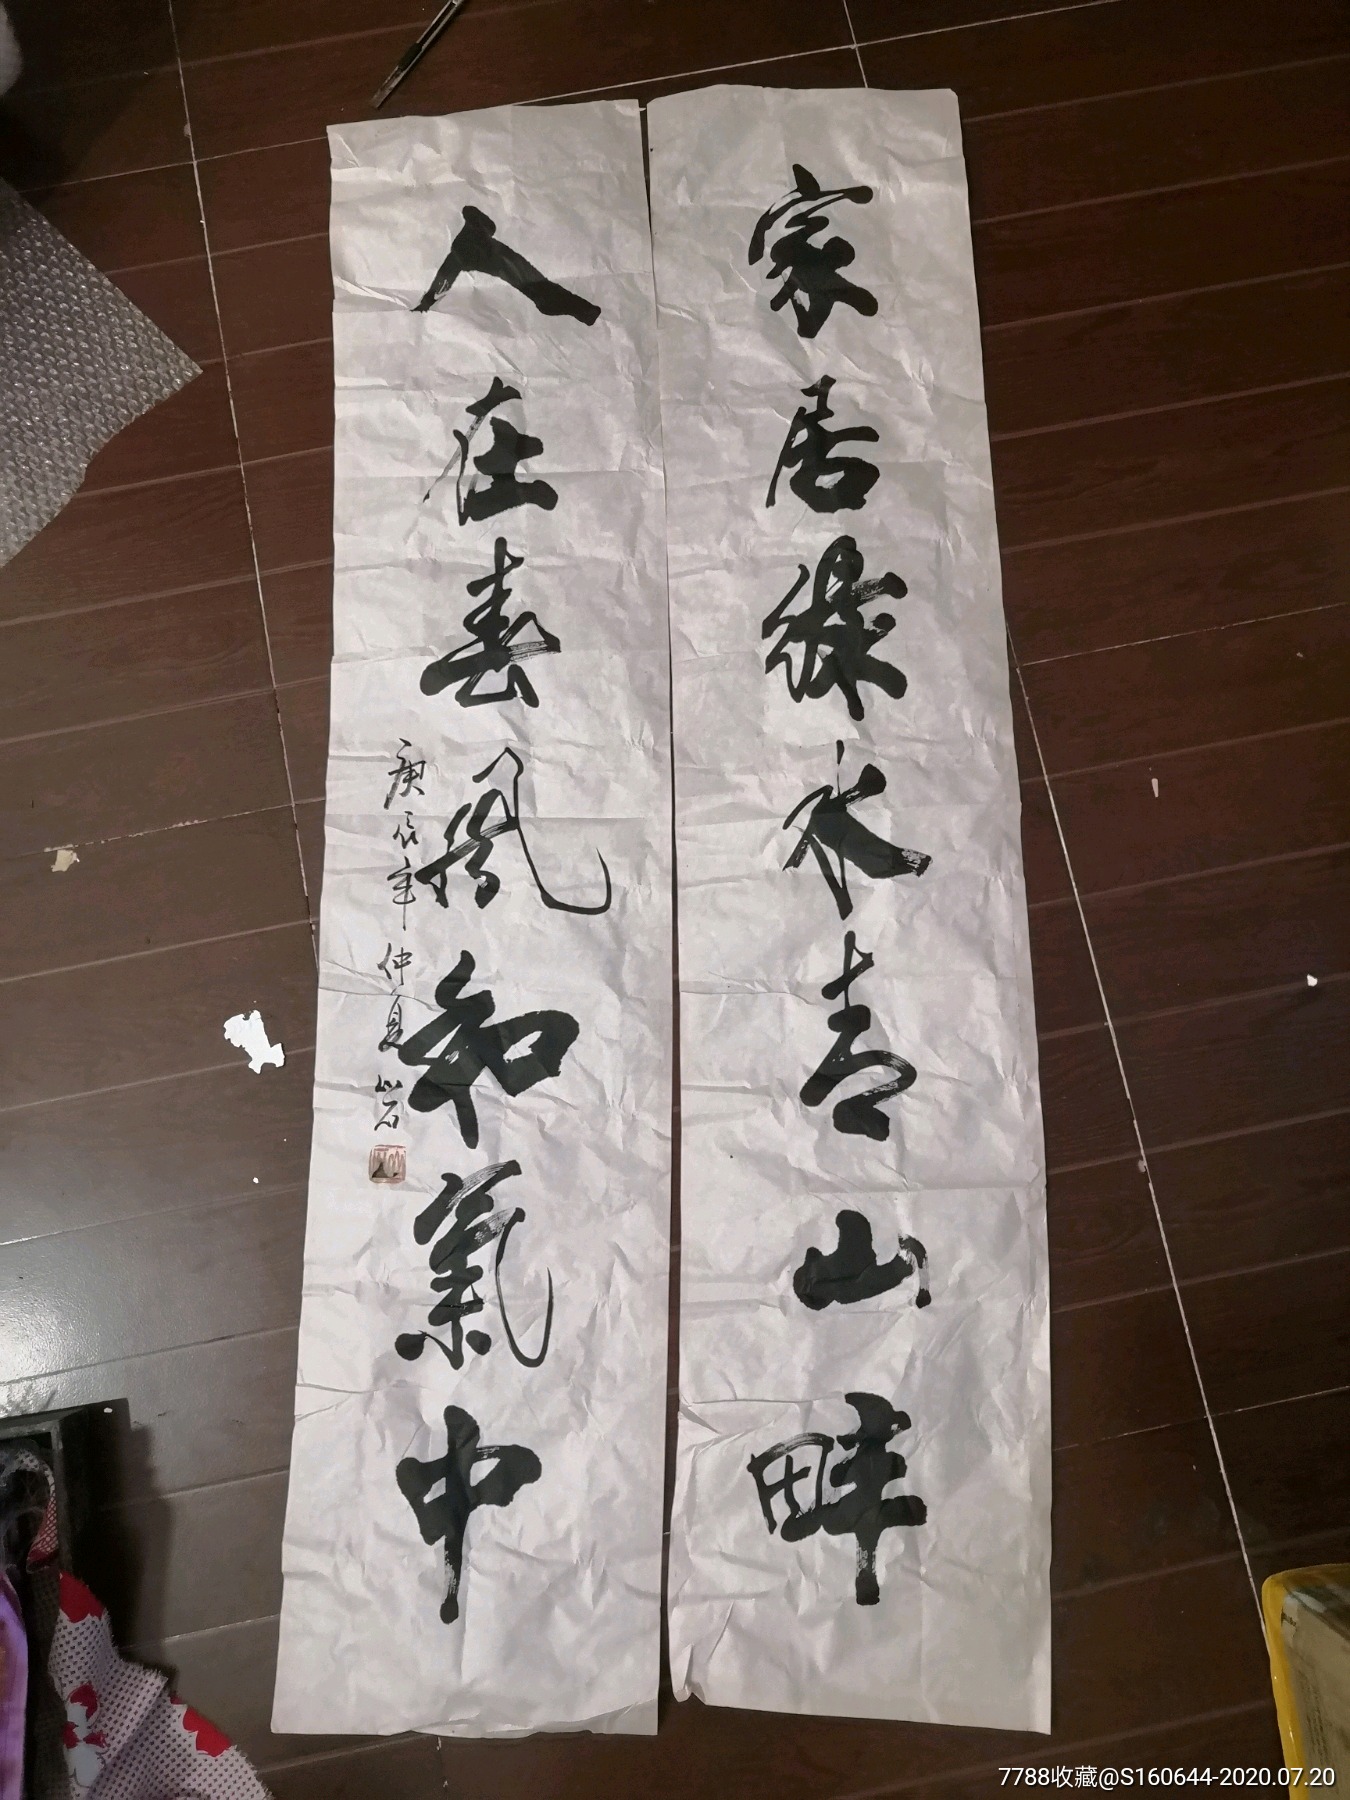 家居緑水青山畔
人在春風和氣中
庚辰年仲夏岩
7788收藏@S160644-2020.07.20